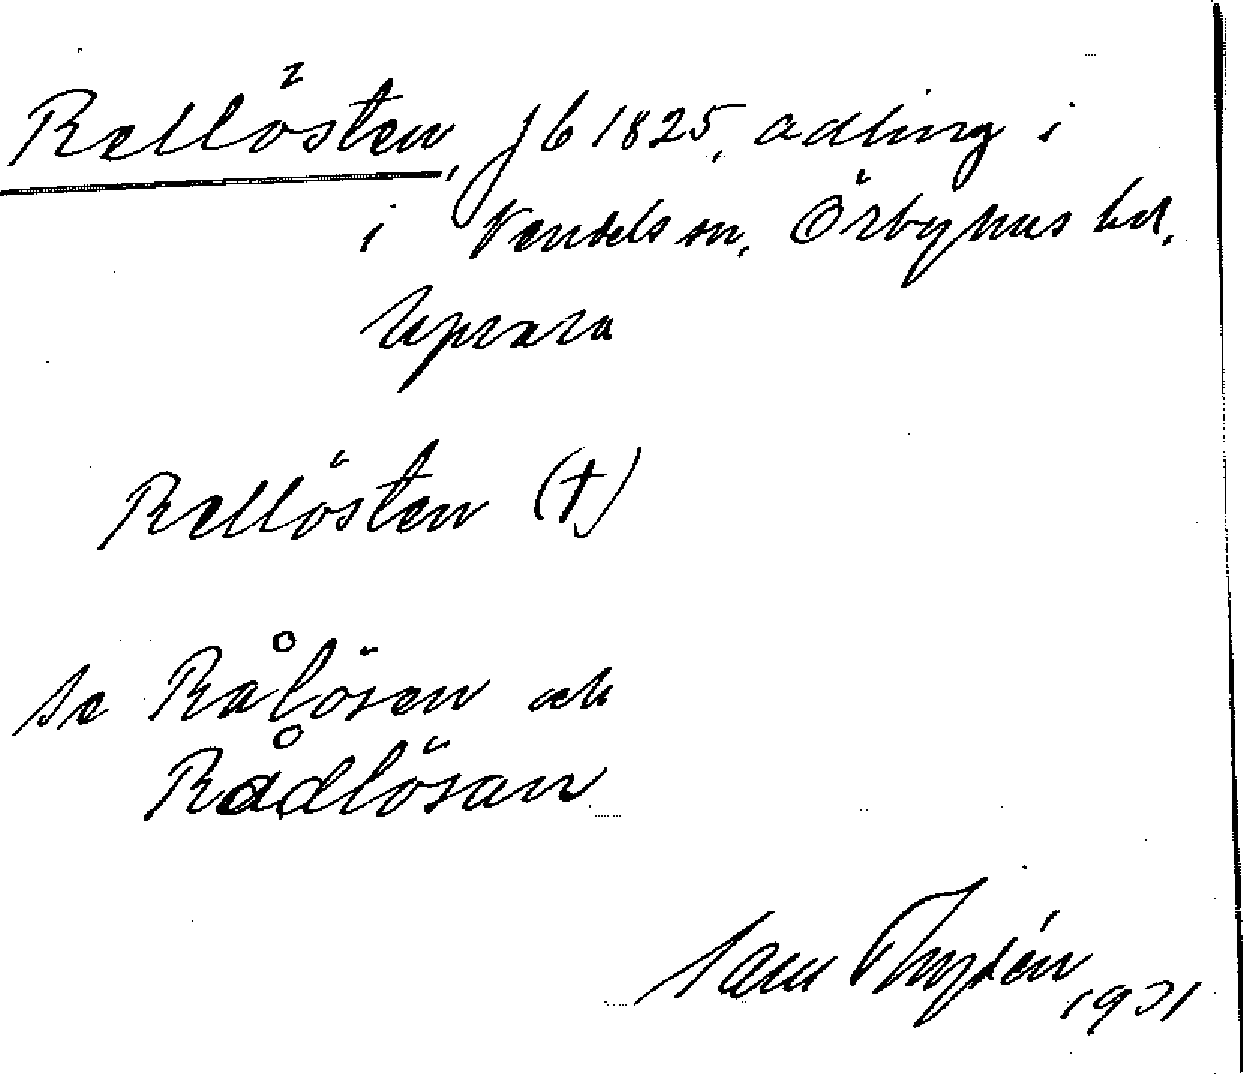 Rellösten, jb 1825, adling i
i Vendels sn, Örbyhus hd,
Uppsala
Rellösten (†)
se Rålösen och
Rådlösan
Sam Thydén
1931